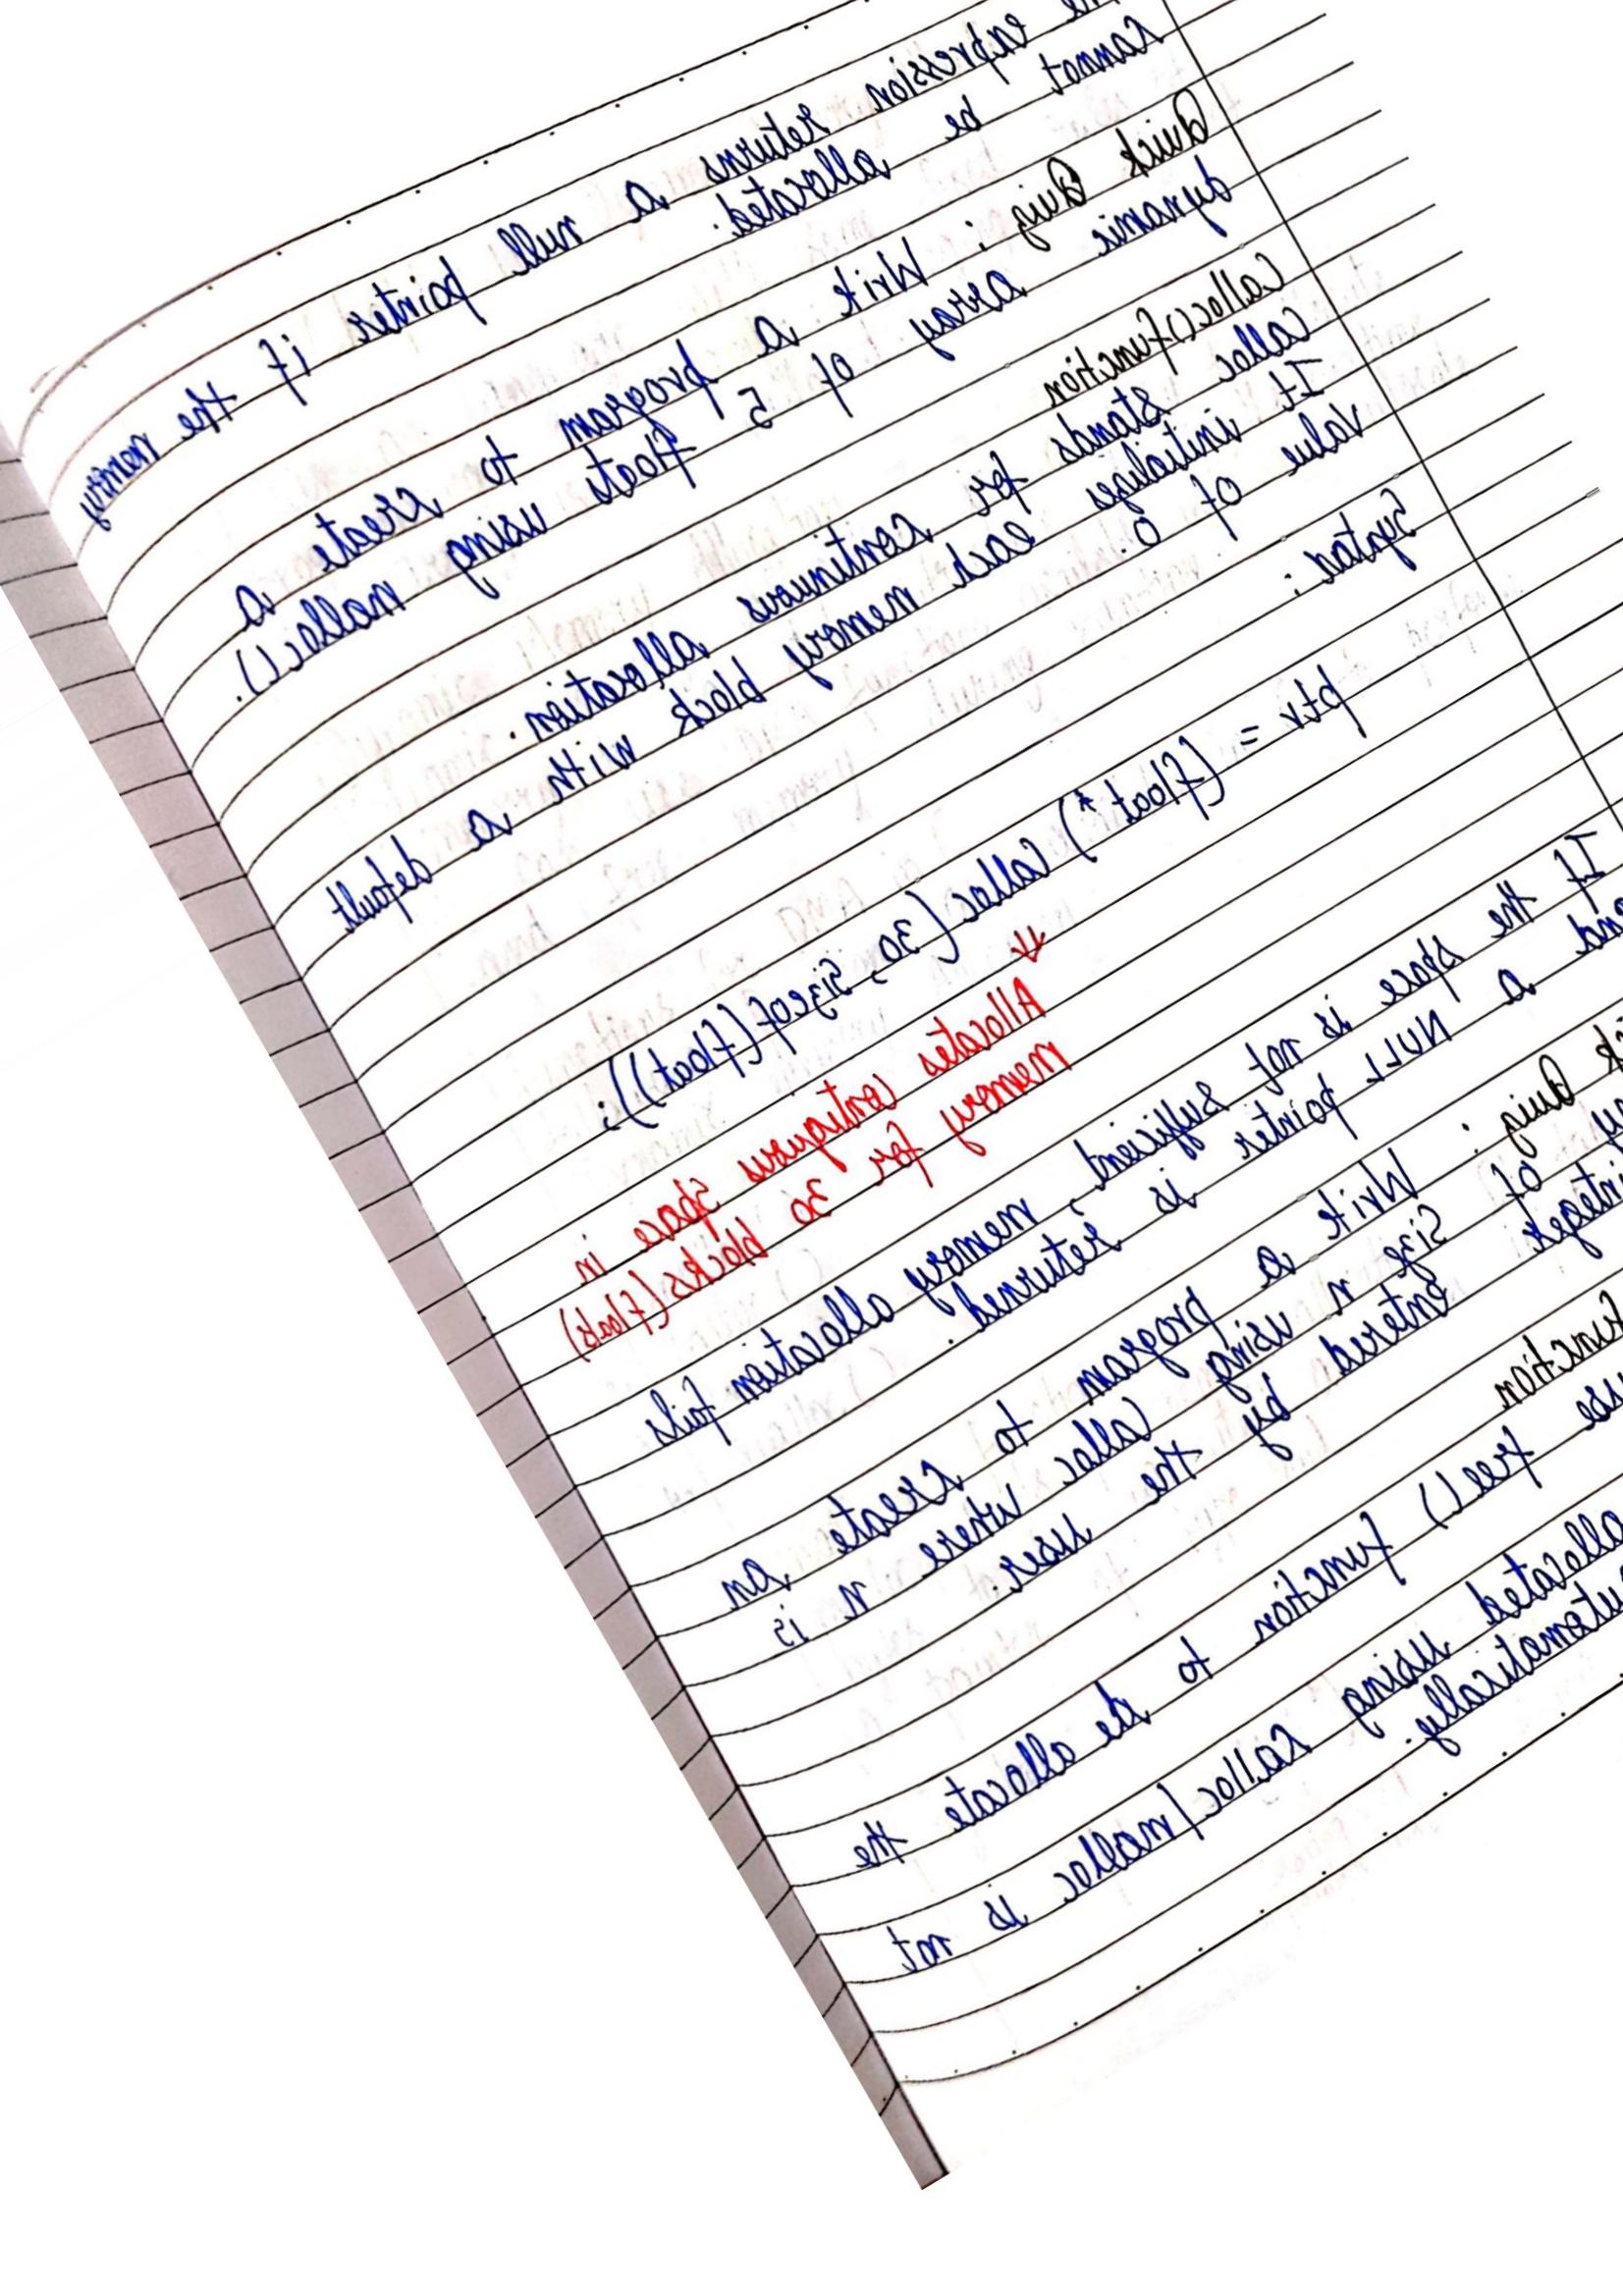 expression returns a null pointer if the memory
cannot be allocated.
Quick Quiz : Write a program to create a
dynamic array of 5 floats using malloc().
calloc() function
calloc stands for continuous allocation.
It initialises each memory block with a default
value of 0.
Syntax :
ptr = (float *) calloc (30, sizeof (float));
↓
Allocates contiguous space in
memory for 30 blocks (floats)
If the space is not sufficient, memory allocation fails
and a NULL pointer is returned.
Quiz : Write a program to create an
of size n using calloc where n is
integer entered by the user.
function
use free() function to de allocate the
allocated using calloc/malloc is not
automatically.